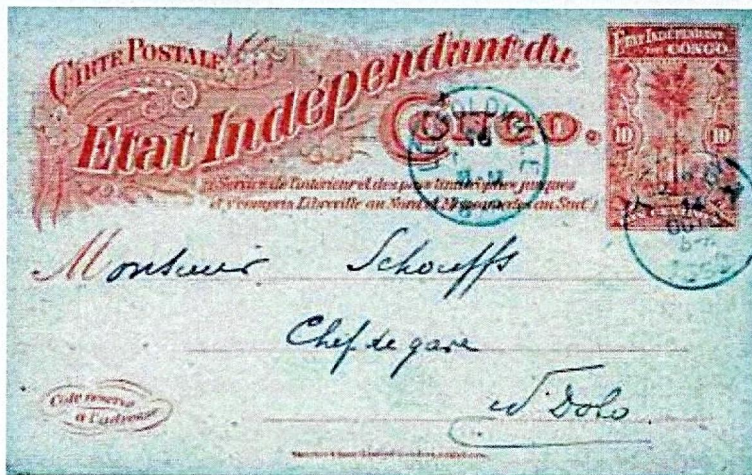 CARTE POSTALE
État Indépendant du
CONGO.
Service de l'intérieur et des pays limitrophes jusques
et y compris Libreville au Nord et Mossamedes au Sud.
ETAT INDÉPENDANT
DU CONGO
10 10
LEOPOLDVILLE
14
Monsieur Schouffs
Chef de gare
Dolo
Côté réservé
à l'adresse